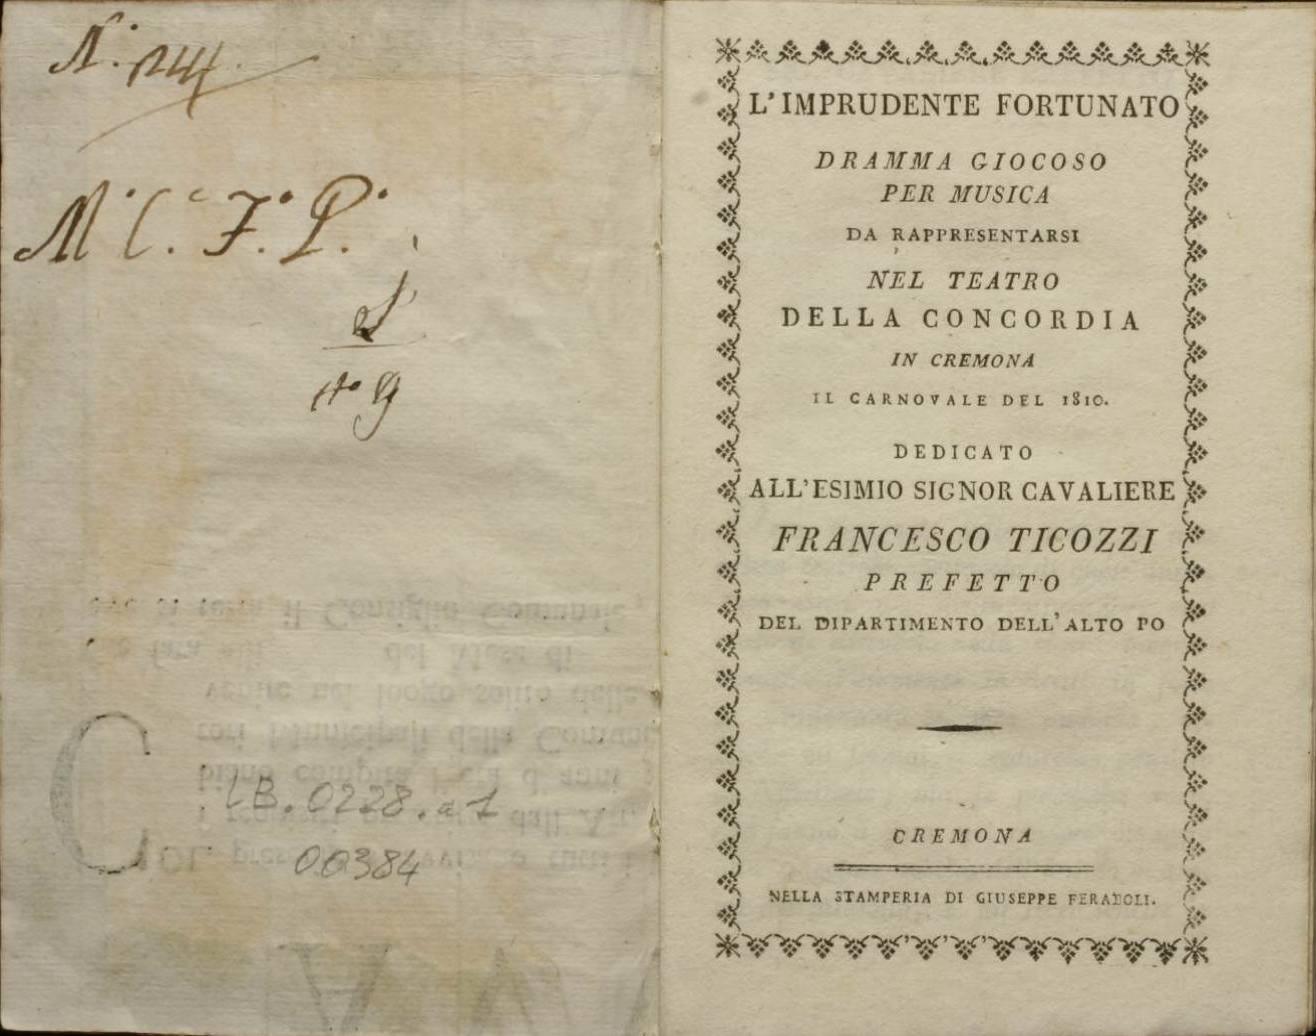 N.° 244.
M.° C.° F.° P.°
n° 9
LB.0228.a1
00384
L'IMPRUDENTE FORTUNATO
DRAMMA GIOCOSO
PER MUSICA
DA RAPPRESENTARSI
NEL TEATRO
DELLA CONCORDIA
IN CREMONA
IL CARNOVALE DEL 1810.
DEDICATO
ALL'ESIMIO SIGNOR CAVALIERE
FRANCESCO TICOZZI
PREFETTO
DEL DIPARTIMENTO DELL'ALTO PO
CREMONA
NELLA STAMPERIA DI GIUSEPPE FERABOLI.